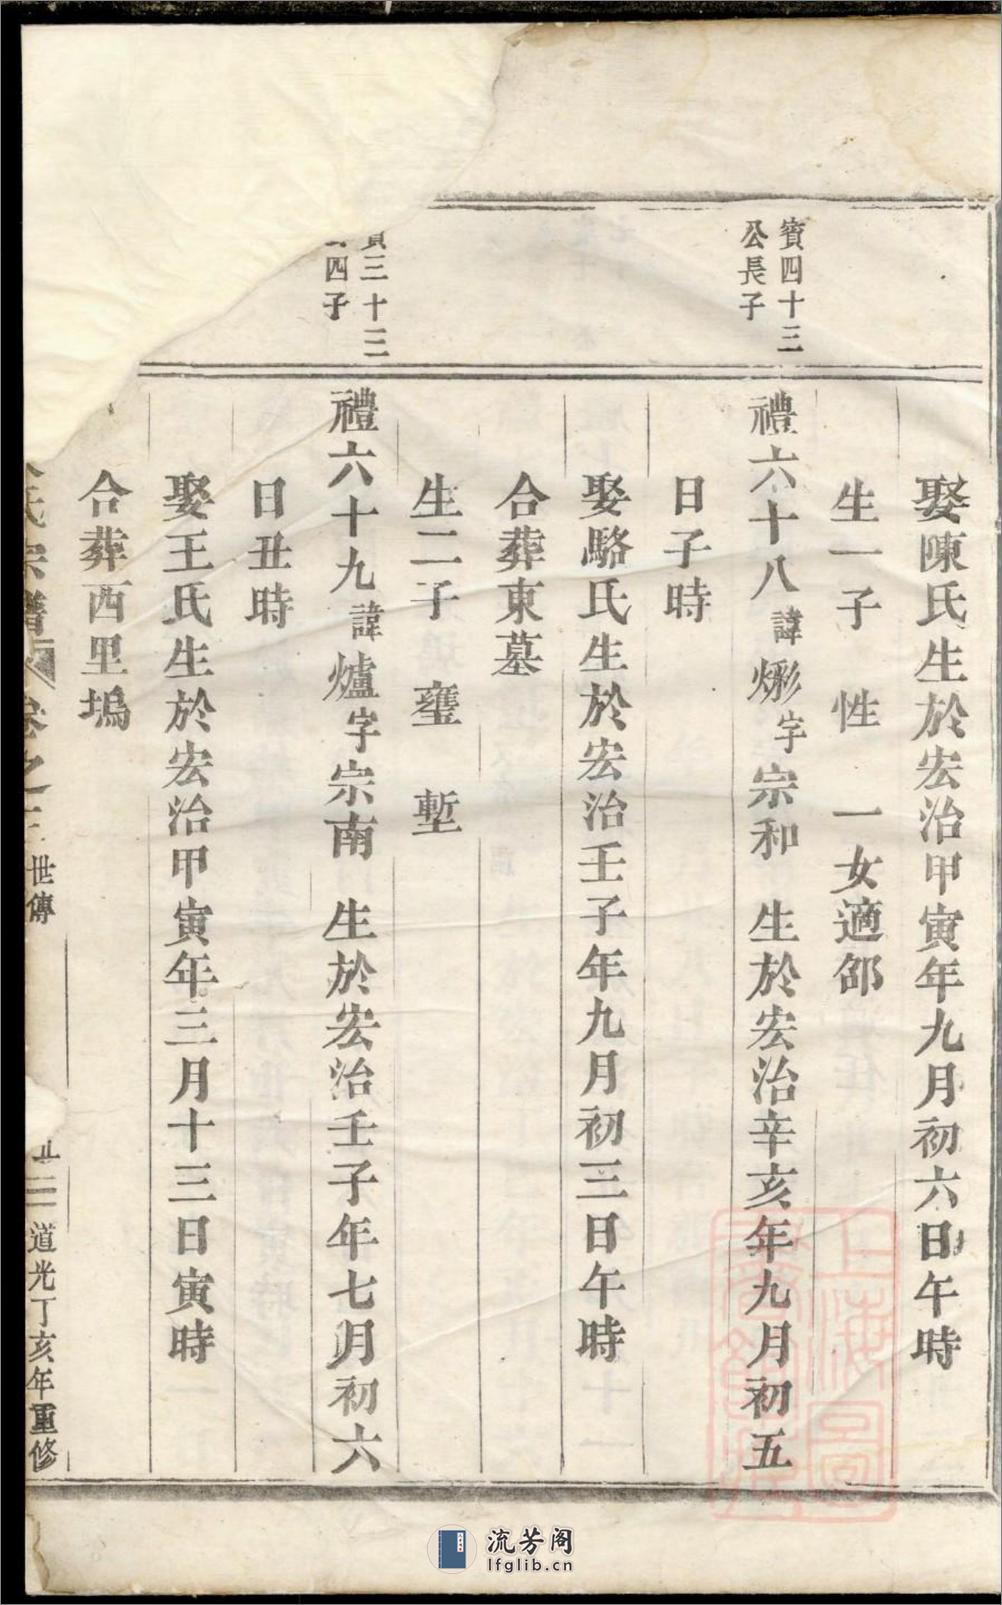 娶陳氏生於宏治甲寅年九月初六日午時
生一子 性 一女適邵
寳四十三
公長子
禮六十八諱燞字宗和 生於宏治辛亥年九月初五
日子時
娶駱氏生於宏治壬子年九月初三日午時
合葬東墓
生二子 壅 塹
三十三
四子
禮六十九諱爐字宗南 生於宏治壬子年七月初六
日丑時
娶王氏生於宏治甲寅年三月十三日寅時
合葬西里塢
氏宗譜 卷之三 世傳
道光丁亥年重修
上海圖
流芳阁
lfglib.cn